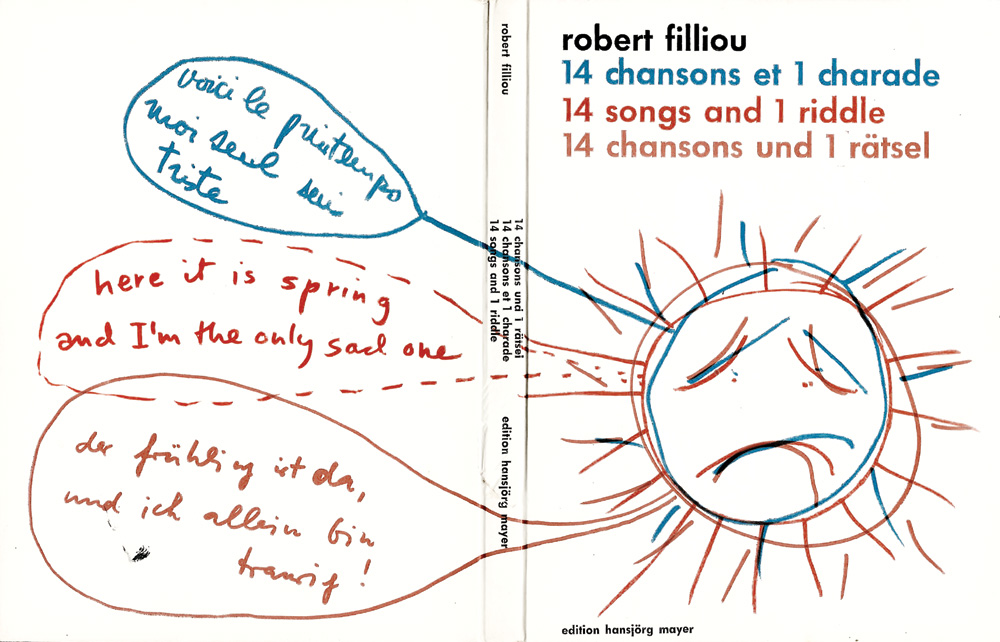 voici le printemps
moi seul sui
triste
here it is spring
and I'm the only sad one
der frühling ist da,
und ich allein bin
traurig!
robert filliou
14 chansons und 1 rätsel
14 chansons et 1 charade
14 songs and 1 riddle
edition hansjörg mayer
robert filliou
14 chansons et 1 charade
14 songs and 1 riddle
14 chansons und 1 rätsel
edition hansjörg mayer